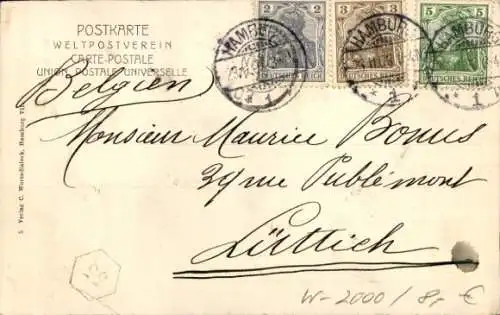 POSTKARTE
WELTPOSTVEREIN
CARTE-POSTALE
UNION POSTALE UNIVERSELLE
2 2
3 3
5 5
DEUTSCHES REICH
DEUTSCHES REICH
DEUTSCHES REICH
HAMBURG
1
HAMBURG
1
1
Belgien
Monsieur Maurice Bonus
39 rue Publémont
Lüttich
Verlag C. Worzedialeck, Hamburg
55
W-2000 / 8,- €